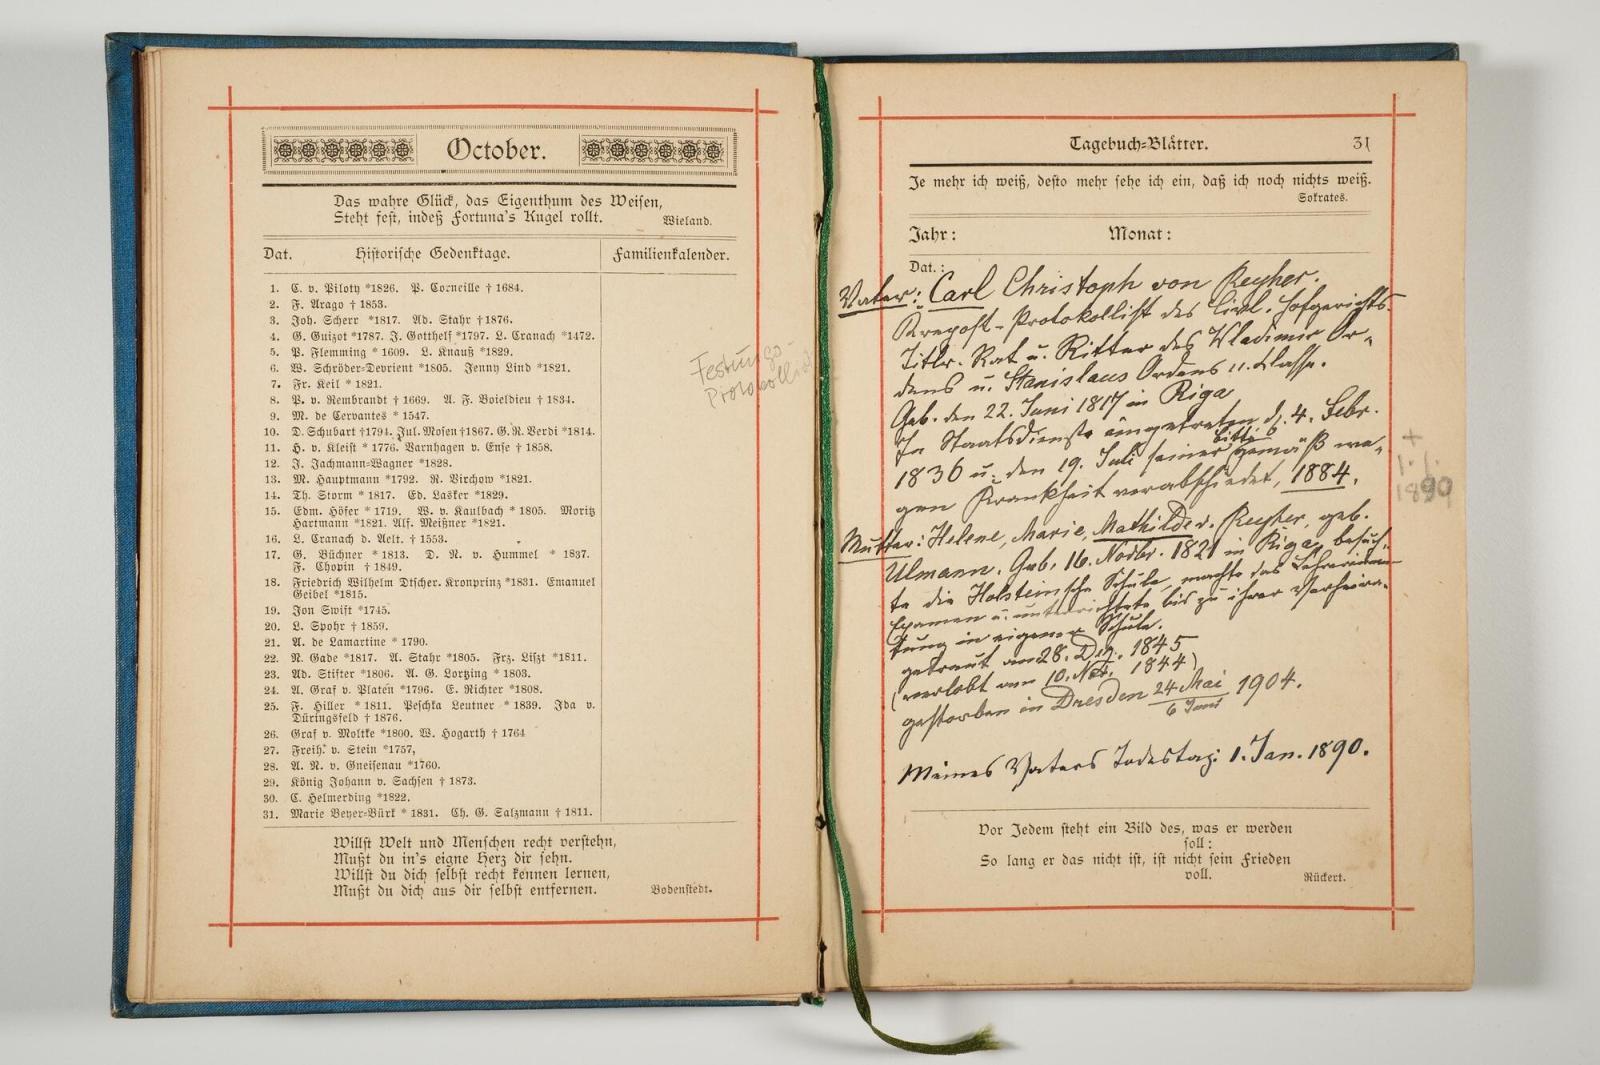 October.
Das wahre Glück, das Eigenthum des Weisen,
Steht fest, indeß Fortuna's Kugel rollt.
Wieland.
Dat. Historische Gedenktage. Familienkalender.
1. C. v. Piloty *1826. P. Corneille † 1684.
2. F. Arago † 1853.
3. Joh. Scherr *1817. Ad. Stahr †1876.
4. G. Guizot *1787. J. Gotthelf *1797. L. Cranach *1472.
5. P. Flemming * 1609. L. Knauß *1829.
6. W. Schröder-Devrient *1805. Jenny Lind *1821.
7. Fr. Keil * 1821.
8. P. v. Rembrandt † 1669. A. F. Boieldieu † 1834.
9. M. de Cervantes * 1547.
10. D. Schubart †1794. Jul. Mosen †1867. G. R. Verdi *1814.
11. H. v. Kleist * 1776. Varnhagen v. Ense † 1858.
12. J. Jachmann-Wagner *1828.
13. M. Hauptmann *1792. R. Virchow *1821.
14. Th. Storm * 1817. Ed. Lasker *1829.
15. Edm. Höfer * 1719. W. v. Kaulbach * 1805. Moritz
Hartmann *1821. Alf. Meißner *1821.
16. L. Cranach d. Aelt. † 1553.
17. G. Büchner * 1813. D. N. v. Hummel * 1837.
F. Chopin † 1849.
18. Friedrich Wilhelm Dtscher. Kronprinz *1831. Emanuel
Geibel *1815.
19. Jon Swift *1745.
20. L. Spohr † 1859.
21. A. de Lamartine * 1790.
22. N. Gade *1817. A. Stahr *1805. Frz. Liszt *1811.
23. Ad. Stifter *1806. A. G. Lortzing * 1803.
24. A. Graf v. Platen *1796. E. Richter *1808.
25. F. Hiller * 1811. Peschka Leutner * 1839. Ida v.
Düringsfeld † 1876.
26. Graf v. Moltke *1800. W. Hogarth † 1764
27. Freih. v. Stein *1757,
28. A. N. v. Gneisenau *1760.
29. König Johann v. Sachsen † 1873.
30. C. Helmerding *1822.
31. Marie Beyer-Bürk * 1831. Ch. G. Salzmann † 1811.
Festungs-
Protokollist
Willst Welt und Menschen recht verstehn,
Mußt du in's eigne Herz dir sehn.
Willst du dich selbst recht kennen lernen,
Mußt du dich aus dir selbst entfernen.
Bodenstedt.
Tagebuch-Blätter. 31
Je mehr ich weiß, desto mehr sehe ich ein, daß ich noch nichts weiß.
Sokrates.
Jahr: Monat:
Dat.:
Vater: Carl Christoph von Reyher.
Krepost-Protokollist des Livl. Hofgerichts.
Titlr. Rat u. Ritter des Wladimir Or-
dens u. Stanislaus Ordens 11. Klasse.
Geb. den 22. Juni 1817 in Riga
In Staatsdienste eingetreten d. 4. Febr.
1836 u. den 19. Juli seiner Bitte gemäß we-
gen Krankheit verabschiedet, 1884.
+
1. 1.
1890
Mutter: Helene, Marie, Mathilde v. Reyher, geb.
Ulmann. Geb. 16. Novbr. 1821 in Riga, besuch-
te die Holsteinsche Schule, machte das Lehrerinnen
Examen u. unterrichtete bis zu ihrer Verheira-
tung in eigener Schule.
getraut am 28. Dez. 1845
(verlobt am 10. Nov. 1844)
gestorben in Dresden 24 Mai / 6 Juni 1904.
Meines Vaters Todestag: 1. Jan. 1890.
Vor Jedem steht ein Bild des, was er werden
soll:
So lang er das nicht ist, ist nicht sein Frieden
voll.
Rückert.